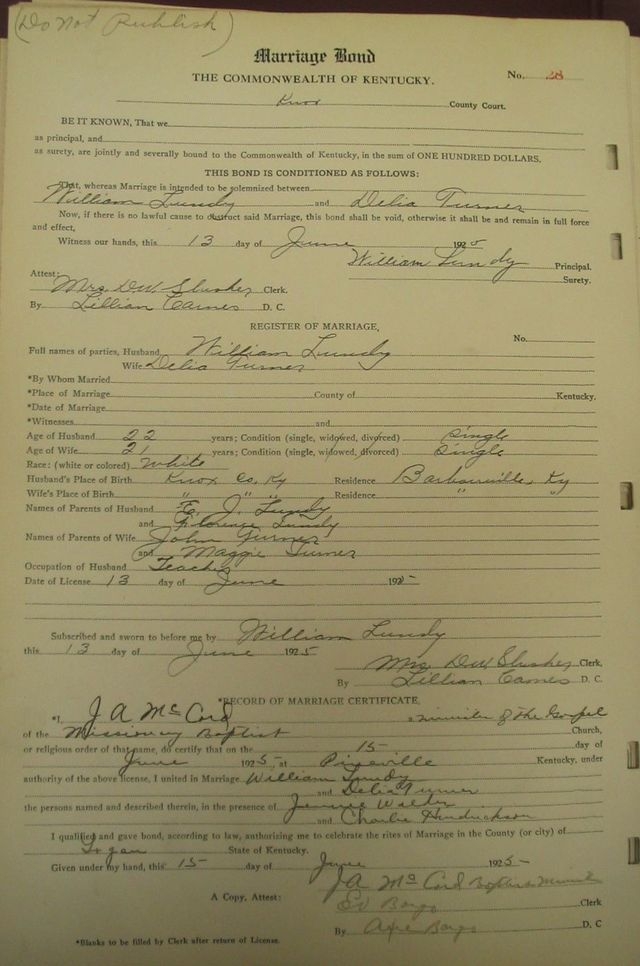 (Do Not Publish)
Marriage Bond
THE COMMONWEALTH OF KENTUCKY. No. 28
Knox County Court.
BE IT KNOWN, That we
as principal, and
as surety, are jointly and severally bound to the Commonwealth of Kentucky, in the sum of ONE HUNDRED DOLLARS,
THIS BOND IS CONDITIONED AS FOLLOWS:
That, whereas Marriage is intended to be solemnized between
William Lundy and Delia Turner
Now, if there is no lawful cause to obstruct said Marriage, this bond shall be void, otherwise it shall be and remain in full force
and effect,
Witness our hands, this 13 day of June 1925
William Lundy Principal.
Surety.
Attest:
Mrs. DW Slusher Clerk.
By Lillian Carnes D. C.
REGISTER OF MARRIAGE,
No.
Full names of parties, Husband William Lundy
Wife Delia Turner
*By Whom Married
*Place of Marriage County of Kentucky.
*Date of Marriage
*Witnesses and
Age of Husband 22 years; Condition (single, widowed, divorced) Single
Age of Wife 21 years; Condition (single, widowed, divorced) Single
Race: (white or colored) White
Husband's Place of Birth Knox Co. Ky Residence Barbourville, Ky
Wife's Place of Birth " " " Residence " "
Names of Parents of Husband J. Lundy
and Florence Lundy
Names of Parents of Wife John Turner
and Maggie Turner
Occupation of Husband Teacher
Date of License 13 day of June 1925
Subscribed and sworn to before me by William Lundy
this 13 day of June 1925
Mrs DW Slusher Clerk.
By Lillian Carnes D. C.
*RECORD OF MARRIAGE CERTIFICATE,
*I, J A McCord a minister of the Gospel
of the Missionary Baptist Church,
or religious order of that name, do certify that on the 15 day of
June 1925 at Pineville Kentucky, under
authority of the above license, I united in Marriage William Lundy
and Delia Turner
the persons named and described therein, in the presence of Jennie Walden
and Charlie Hendrickson
I qualified and gave bond, according to law, authorizing me to celebrate the rites of Marriage in the County (or city) of
Logan State of Kentucky.
Given under my hand, this 15 day of June 1925
J A McCord Baptist
A Copy, Attest: Ed Clerk
By D. C
*Blanks to be filled by Clerk after return of License.